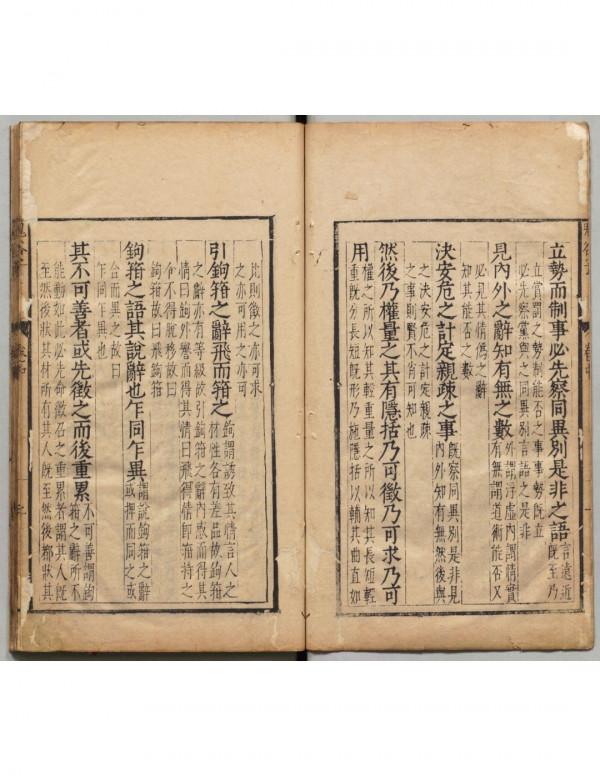 立勢而制事必先察同異別是非之語
言遠近
既至乃
立賞謂之勢制能否之事事勢既立
必先察黨與之同異別言語之是非
見內外之辭知有無之數
外謂浮虛內謂情實
有無謂道術能否又
必見其情偽之辭
知其能否之數
決安危之計定親疎之事
既察同異別是非見
內外知有無然後與
之決安危之計定親疎
之事則賢不肖可知也
然後乃權量之其有隱括乃可徵乃可求乃可
用
權之所以知其輕重量之所以知其長短輕
重既分長短既形乃施隱括以輔其曲直如
比則徵之亦可求
之亦可用之亦可
引鉤箝之辭飛而箝之
鉤謂誘致其情言人之
材性各有差品故鉤箝
之辭亦有等級故引鉤箝之辭內惑而得其
情曰鉤外譽而得其情曰飛得情即箝持之
令不得脫移故曰
鉤箝故曰飛鉤箝
鉤箝之語其說辭也乍同乍異
謂說鉤箝之辭
或捭而同之或
合而異之故曰
乍同乍異也
其不可善者或先徵之而後重累
不可善謂鉤
箝之所不
能動如此必先命徵召之重累者謂其人既
至然後狀其材所有其人既至然後都狀其
鬼谷子
卷中